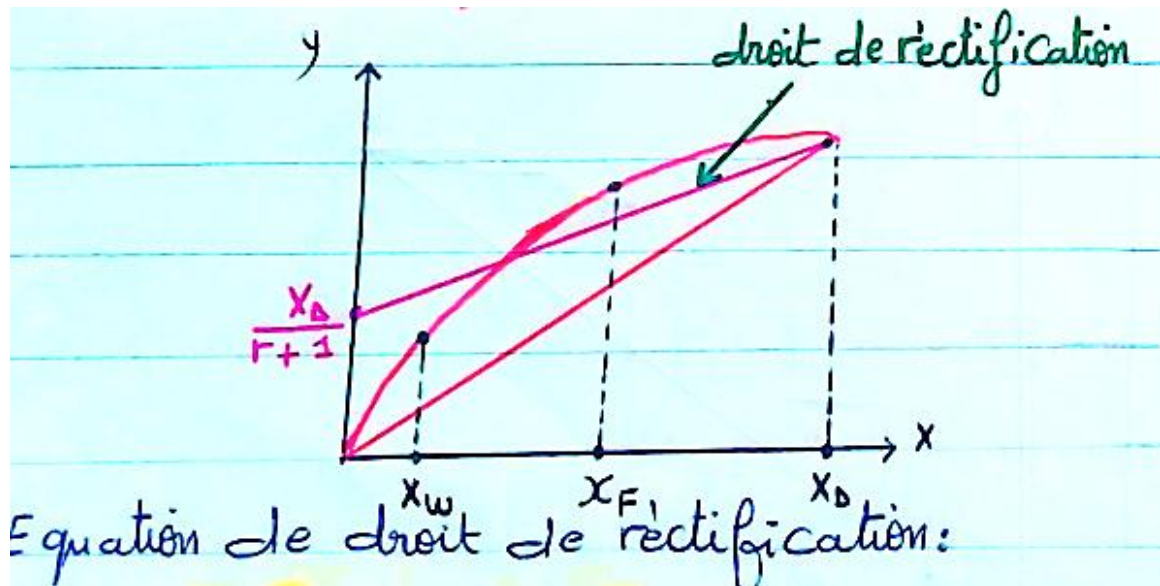 y
droit de rèctification
X_D
r+1
x
x_W x_F X_D
Equation de droit de rèctification: